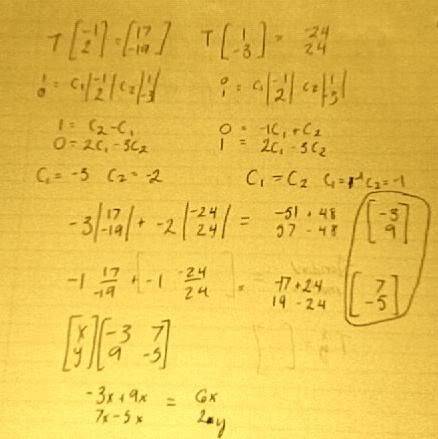 T [-1 2] = [17 -19] T [1 -3] = -24 24
1 0 = C1 |-1 2| C2 |1 -3| 0 1 = C1 |-1 2| C2 |1 -3|
1 = C2 - C1 0 = -1C1 + C2
0 = 2C1 - 3C2 1 = 2C1 - 3C2
C1 = -3 C2 = -2 C1 = C2 C1 = -1 C2 = -1
-3 |17 -19| + -2 |-24 24| = -51 + 48 57 - 48 [-3 9]
-1 17 -19 + -1 -24 24 = -17 + 24 19 - 24 [7 -5]
[x y] [-3 7 9 -5]
-3x + 9x = 6x
7x - 5x 2 y